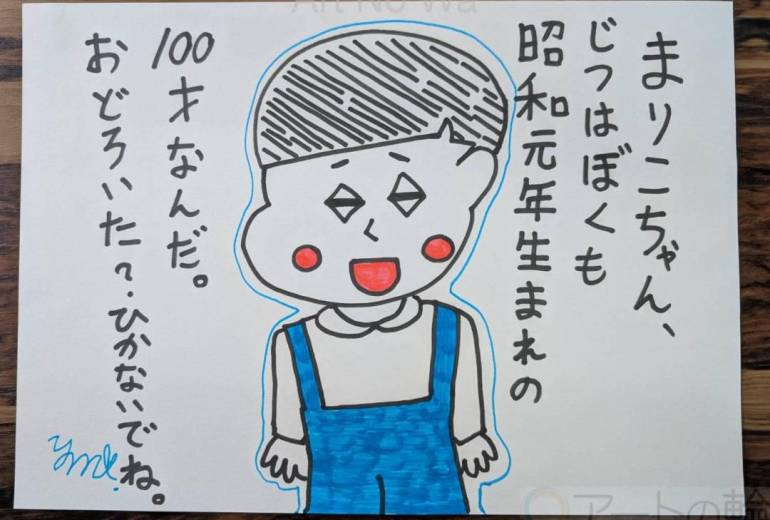 まりこちゃん、
じつはぼくも
昭和元年生まれの
100才なんだ。
おどろいた?ひかないでね。
アートの輪